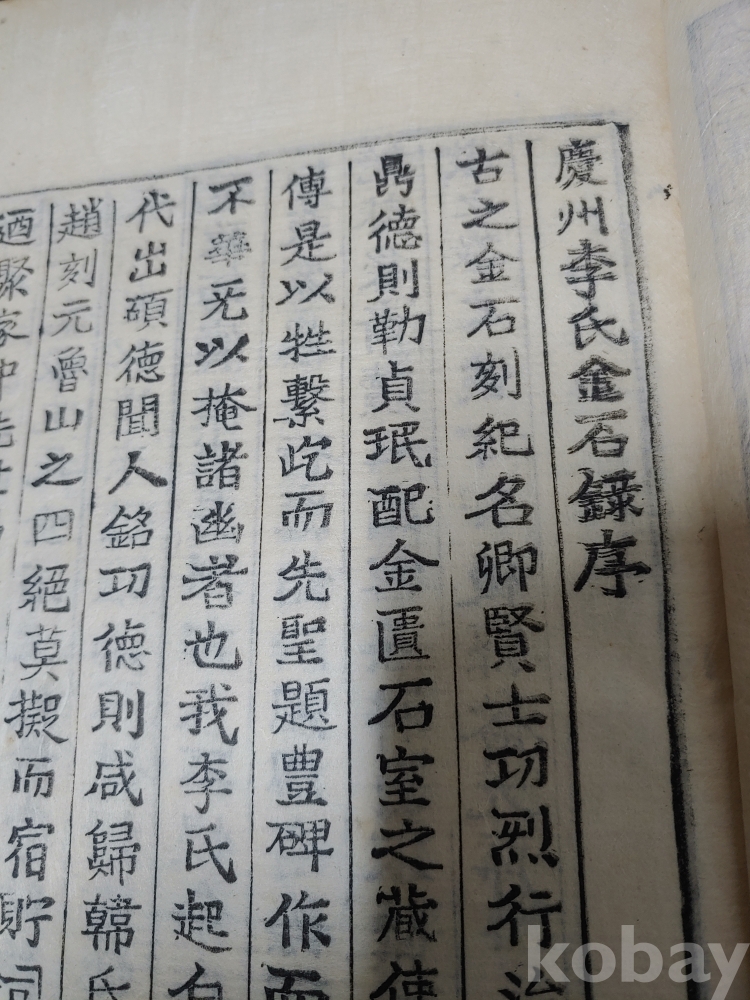 慶州李氏金石錄序
古之金石刻紀名卿賢士功烈行治
鼎德則勒貞珉配金匱石室之藏使
傳是以牲繫屹而先聖題豊碑作而
不華无以掩諸幽者也我李氏起自
代出碩德聞人銘功德則咸歸韓氏
趙刻元魯山之四絕莫擬而宿貯詞
迺聚家中先世
kobay